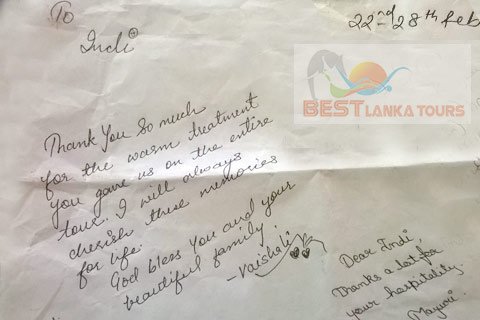 To
Indi
22nd 28th Feb
BEST LANKA TOURS
Thank You So much
for the warm treatment
you gave us on the entire
tour. I will always
cherish these memories
for life.
God bless you and your
beautiful family
- Vaishali
Dear Indi,
Thanks a lot for
your hospitality,
Mayuri